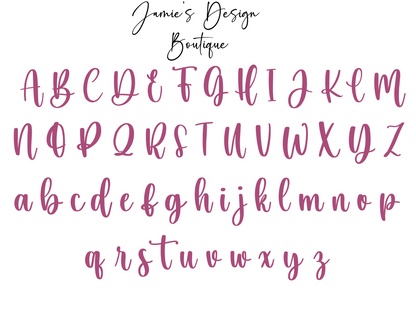 Jamie's Design
Boutique
A B C D E F G H I J K L M
N O P Q R S T U V W X Y Z
a b c d e f g h i j k l m n o p
q r s t u v w x y z